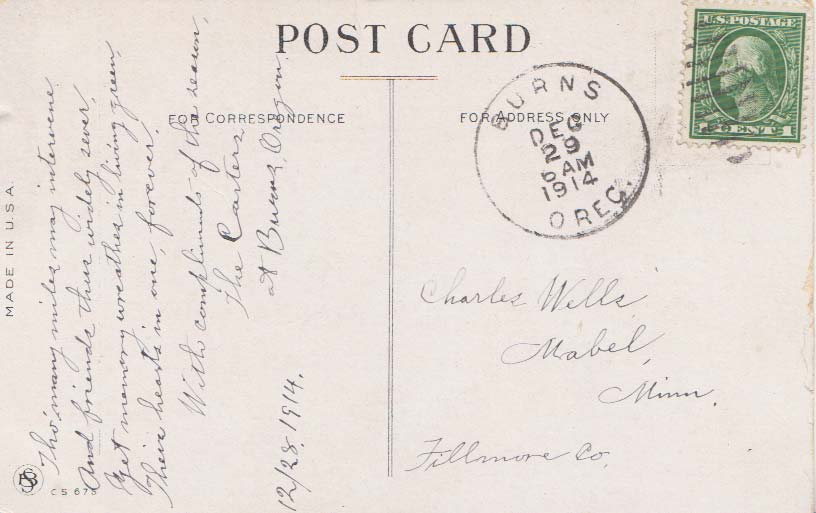 POST CARD
FOR CORRESPONDENCE
FOR ADDRESS ONLY
U.S. POSTAGE
1 CENT 1
BURNS
DEC
29
6 AM
1914
OREG.
Tho' many miles may intervene
And friends thus widely sever,
Yet memory wreathes in living green,
Their hearts in one, forever.
With compliments of the season,
The Carters,
at Burns, Oregon.
12/28, 1914.
Charles Wells,
Mabel,
Minn.
Fillmore Co.
MADE IN U.S.A.
CS 675